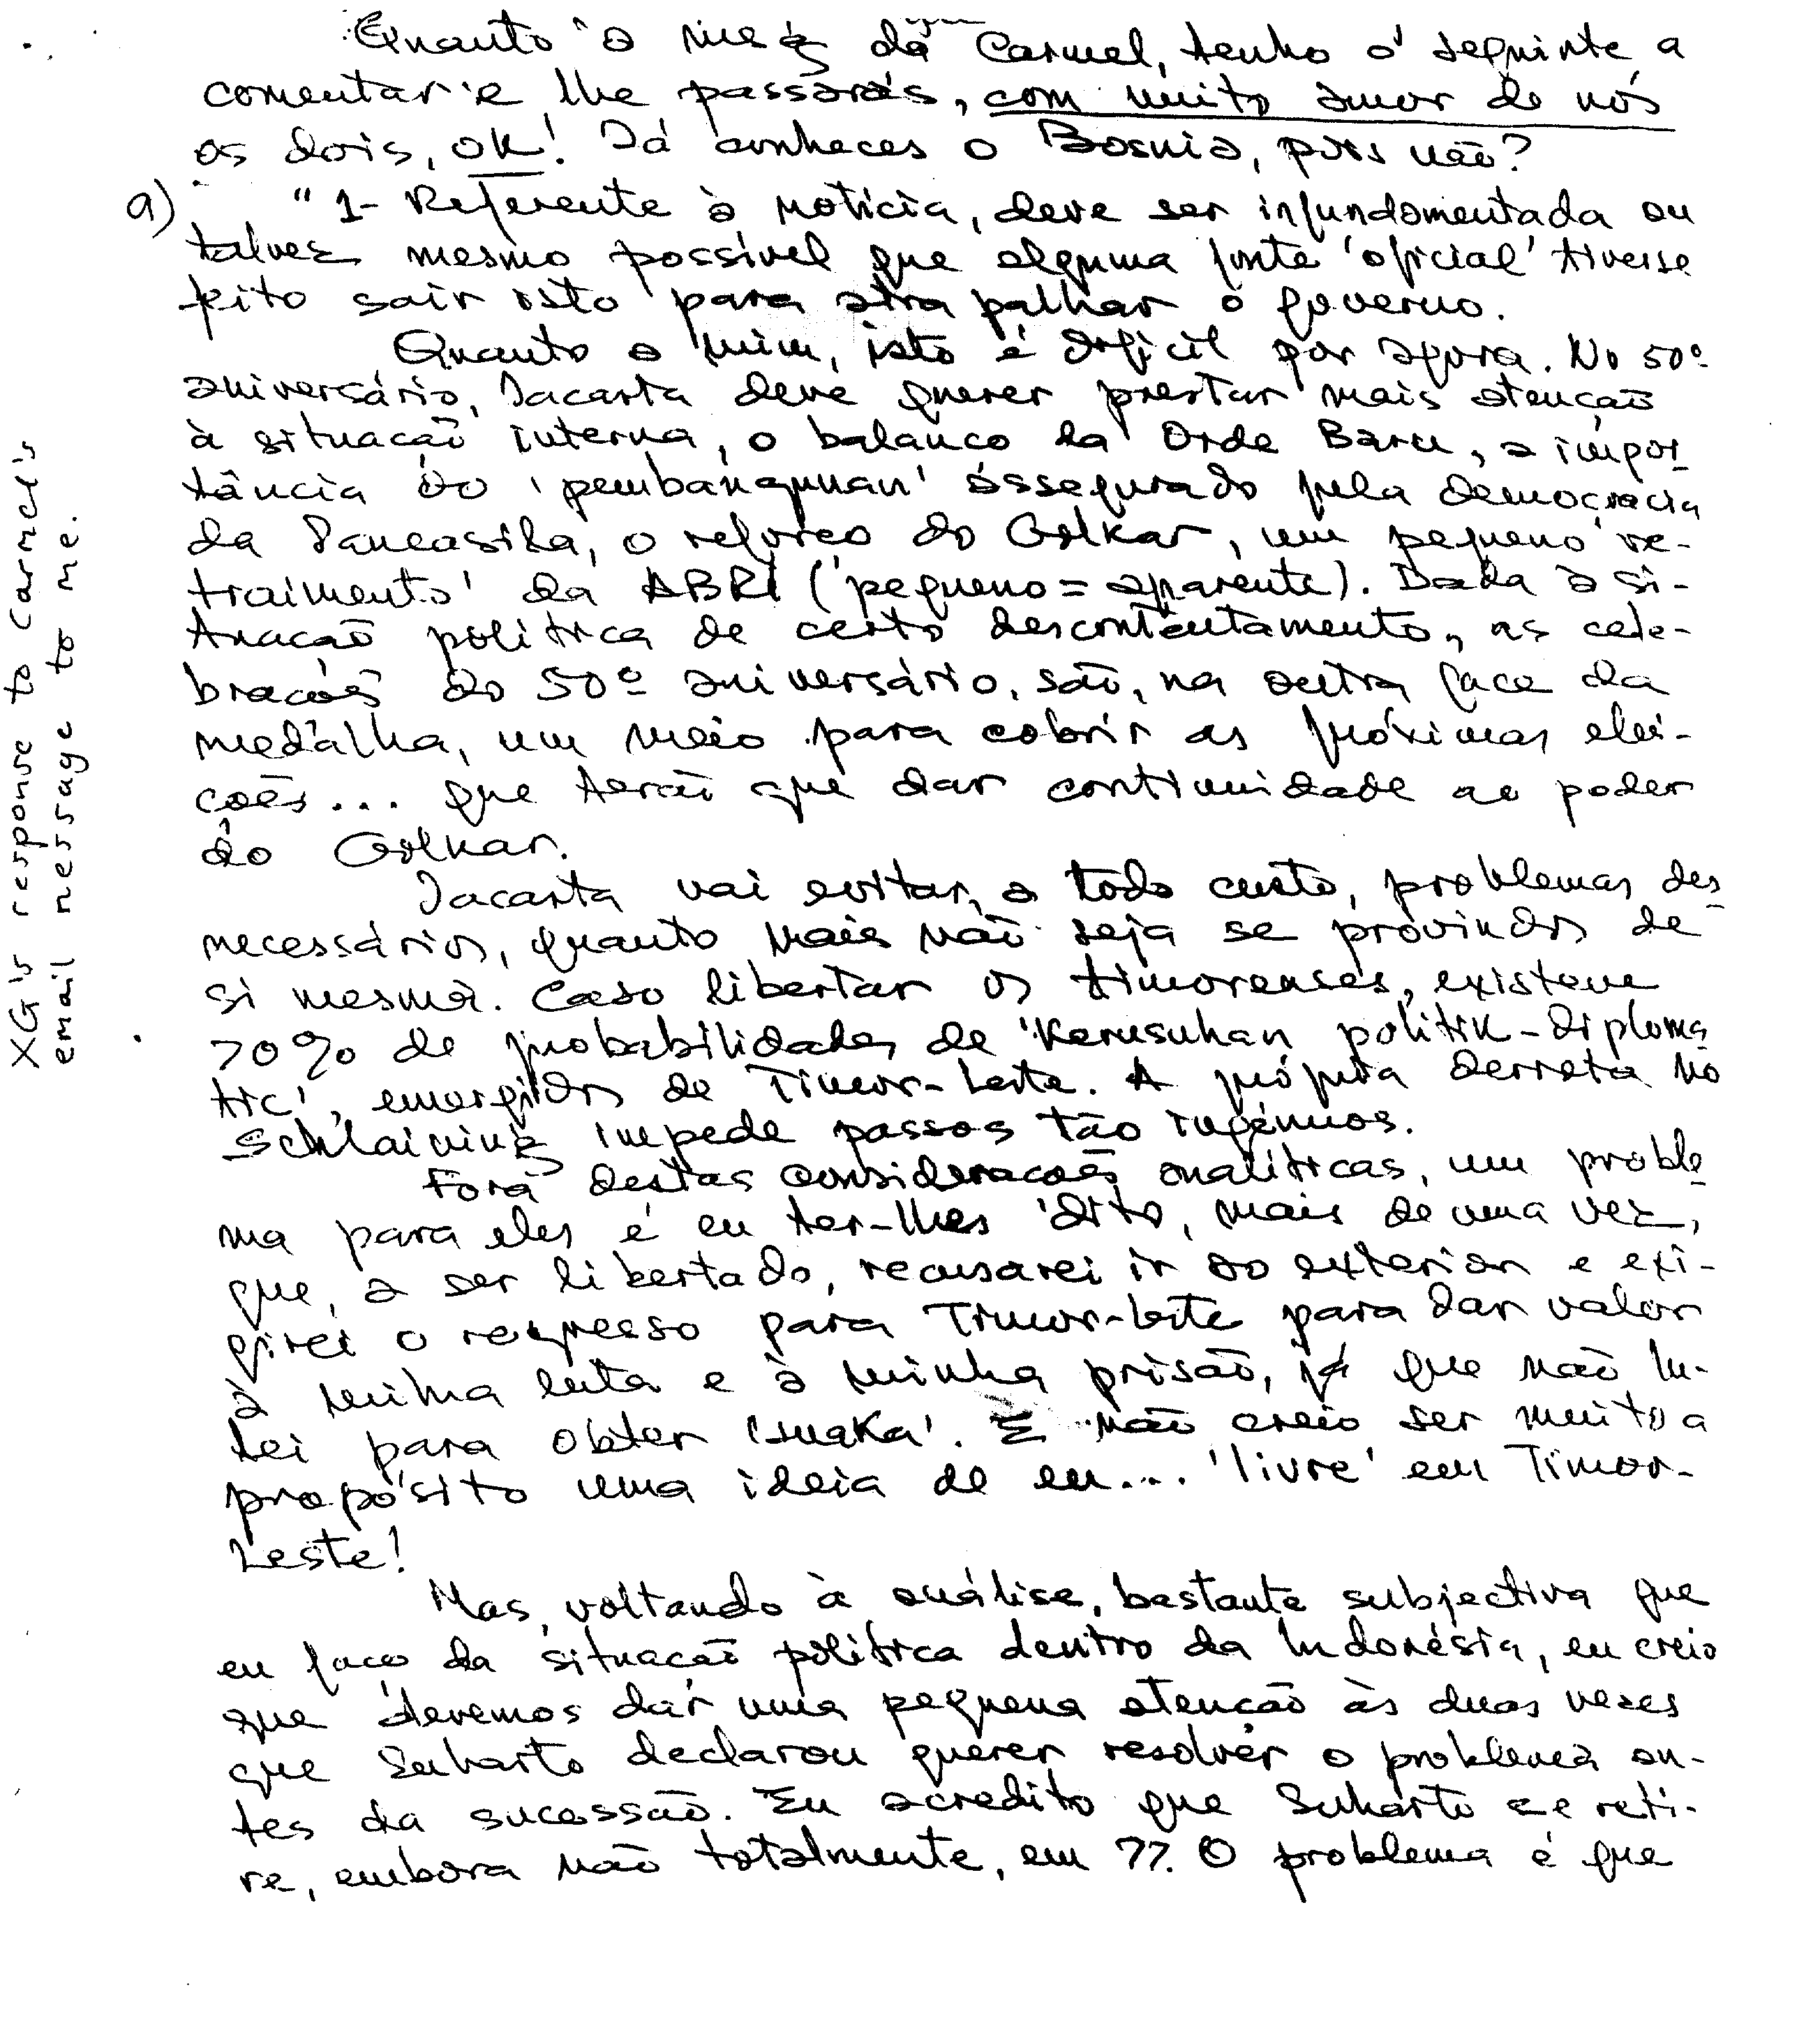 Quanto à msg da Carmel, tenho o seguinte a
comentar e lhe passarás, com muito amor de nós
os dois, OK! Já conheces o Bosnia, pois não?
a) "1- Referente à notícia, deve ser infundamentada ou
talvez mesmo possível que alguma fonte 'oficial' tivesse
feito sair isto para atrapalhar o governo.
Quanto a mim, isto é difícil por agora. No 50º
aniversário, Jacarta deve querer prestar mais atenção
à situacão interna, o balanco da Orde Baru, a impor-
tância do 'pembangunan' assegurado pela democracia
da Pancasila, o reforco do Golkar, um pequeno 're-
traimento' da ABRI ('pequeno = aparente). Dada a si-
tuacão política de certo descontentamento, as cele-
bracões do 50º aniversário, são, na outra face da
medalha, um meio para cobrir as próximas elei-
cões... que terão que dar continuidade ao poder
do Golkar.
Jacarta vai evitar, a todo custo, problemas des-
necessários, quanto mais não seja se provindos de
si mesma. Caso libertar os timorenses, existem
70% de probabilidades de 'Kerusuhan politik-diploma-
tic', emergidos de Timor-Leste. A própria derrota no
Schlaining impede passos tão ingénuos.
Fora destas consideracões analíticas, um proble-
ma para eles é eu ter-lhes dito, mais de uma vez,
que, a ser libertado, recusarei ir ao exterior e exi-
girei o regresso para Timor-Leste para dar valor
à minha luta e à minha prisão, já que não lu-
tei para obter 'suaka'. E não creio ser muito a
propósito uma ideia de eu... 'livre' em Timor-
Leste!
Mas, voltando à análise, bastante subjectiva que
eu faco da situacão política dentro da Indonésia, eu creio
que devemos dar uma pequena atencão às duas vezes
que Suharto declarou querer resolver o problema an-
tes da sucessão. Eu acredito que Suharto se reti-
re, embora não totalmente, em 97. O problema é que
XG's response to Carmel's
email message to me.